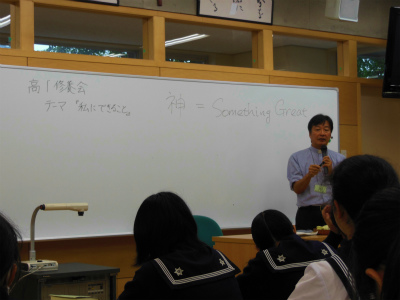 高1修養会
テーマ「私にできること。
神 = Something Great